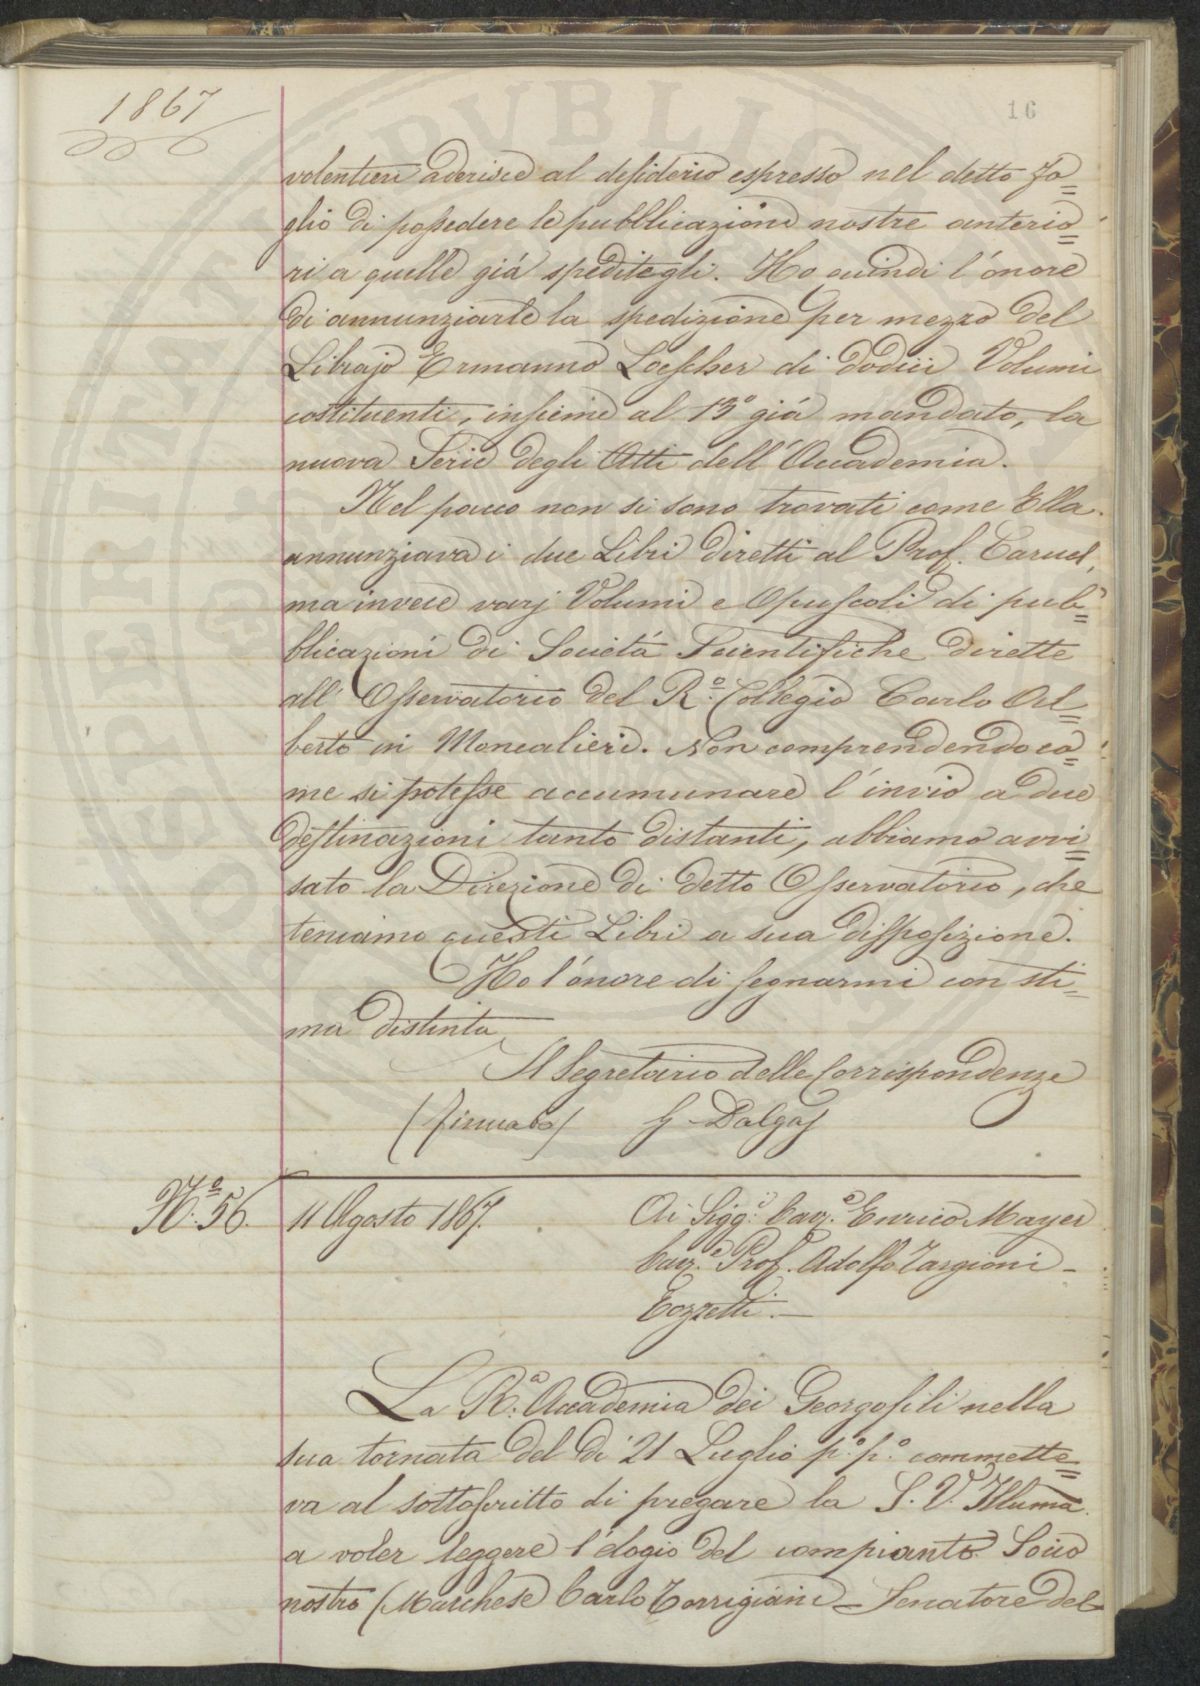 1867
16
volentieri aderisce al desiderio espresso nel detto fo=
glio di possedere le pubblicazioni nostre anterio=
ri a quelle già speditegli. Ho quindi l'onore
di annunziarle la spedizione per mezzo del
Librajo Ermanno Loescher di dodici Volumi
costituenti, insieme al 13° già mandato, la
nuova Serie degli Atti dell'Accademia.
Nel pacco non si sono trovati come Ella
annunziava i due Libri diretti al Prof. Caruel,
ma invece varj Volumi e Opuscoli di pub=
blicazioni di Società Scientifiche dirette
all'Osservatorio del R.° Collegio Carlo Al=
berto in Moncalieri. Non comprendendo co=
me si potesse accumunare l'invio a due
destinazioni tanto distanti, abbiamo avvi=
sato la Direzione di detto Osservatorio, che
teniamo questi Libri a sua disposizione.
Ho l'onore di segnarmi con sti=
ma distinta
Il Segretario delle Corrispondenze
(firmato) G. Dalgas
N.° 56. 11 Agosto 1867. Ai Sigg.i Cav.e Enrico Mayer
Cav.e Prof. Adolfo Targioni-
Tozzetti.—
La R.a Accademia dei Georgofili nella
sua tornata del dì 21 Luglio p.° p.° commette=
va al sottoscritto di pregare la S. V. Illuma.
a voler leggere l'elogio del compianto Socio
nostro (Marchese Carlo Torrigiani = Senatore del
DVBLICA
PROSPERITATI